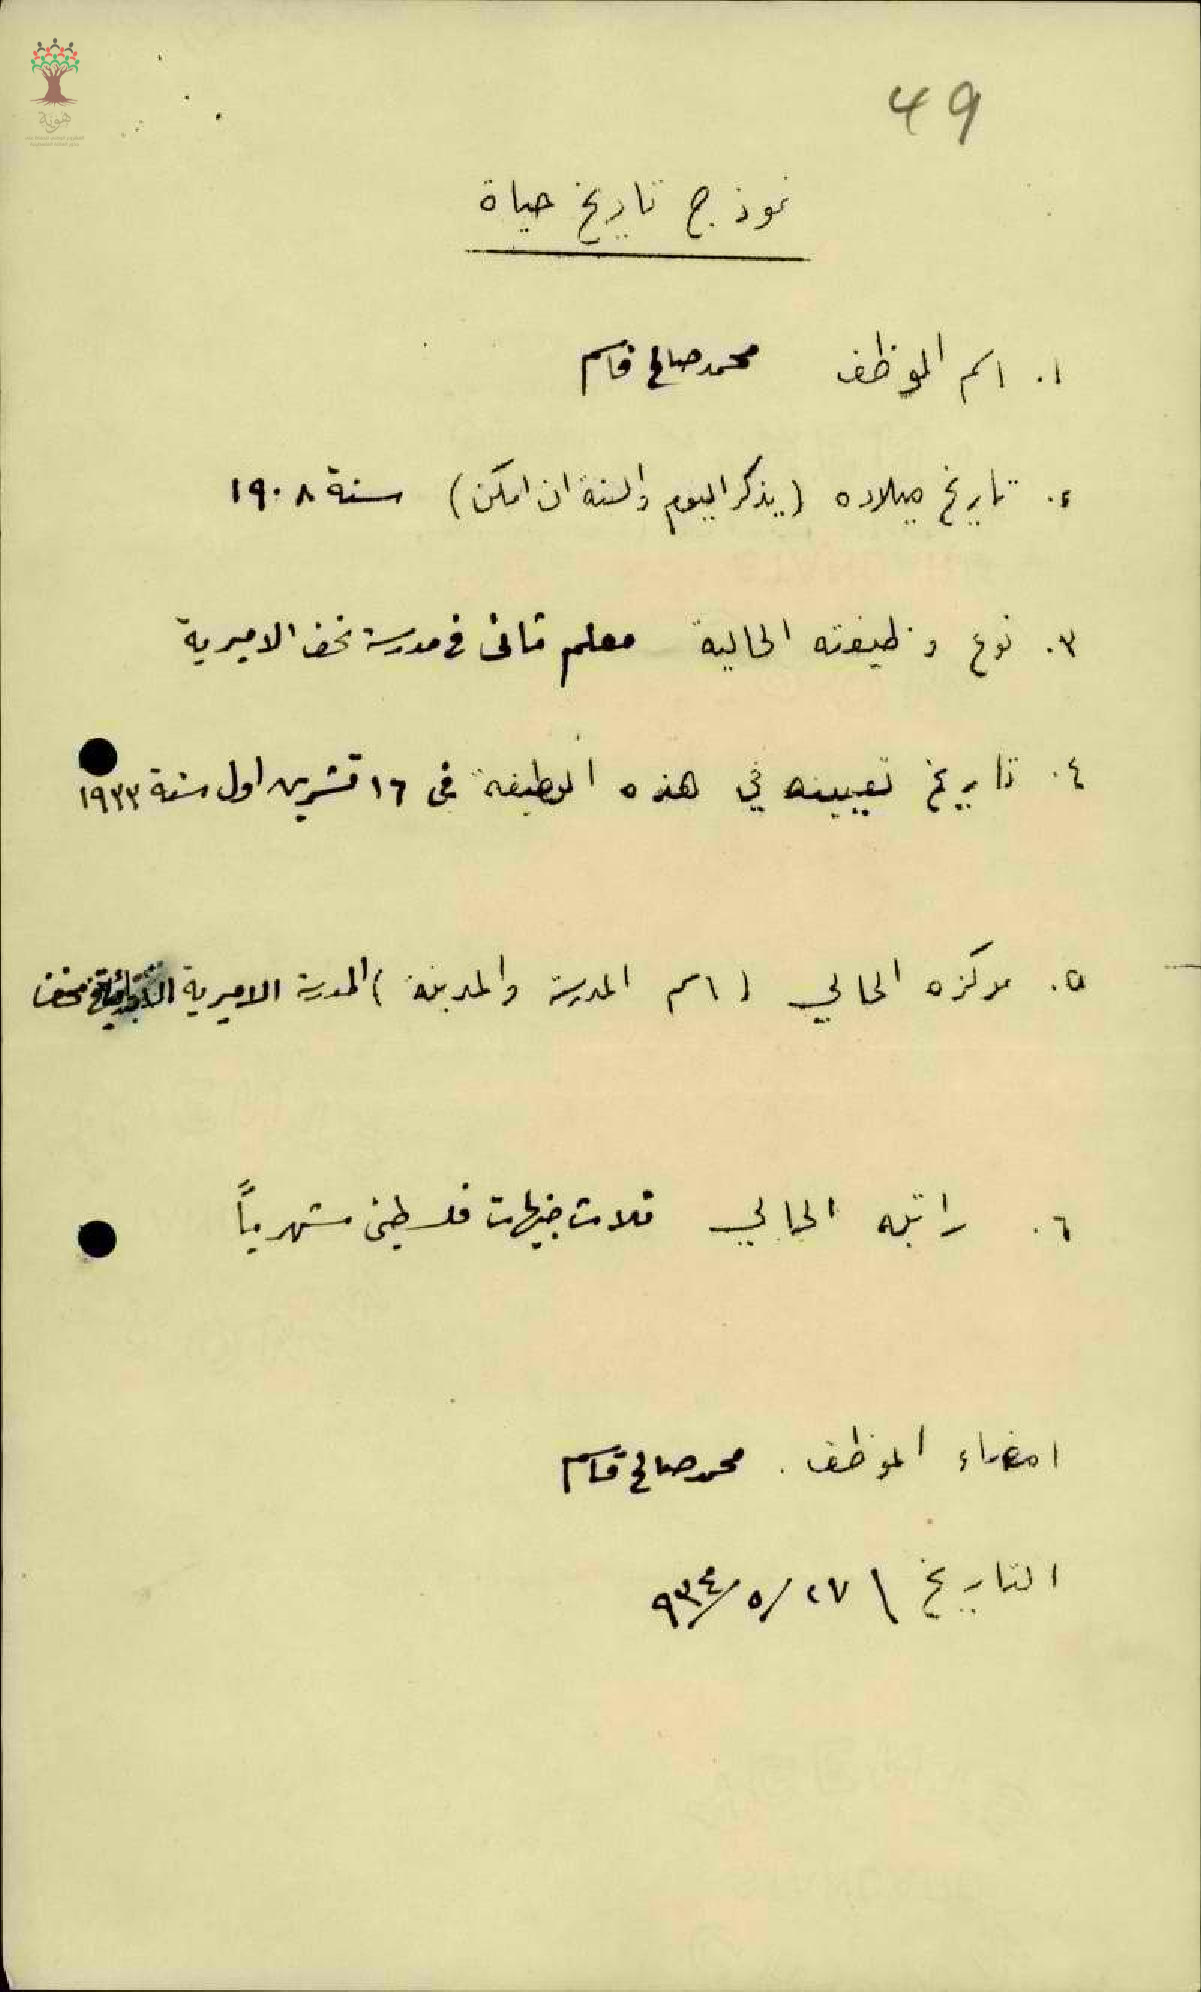 هوية
49
نموذج تاريخ حياة
١. اسم الموظف محمد صالح قاسم
٢. تاريخ ميلاده (يذكر اليوم والسنة ان امكن) سنة ١٩٠٨
٣. نوع وظيفته الحالية معلم ثانى فى مدرسة نحف الاميرية
٤. تاريخ تعيينه في هذه الوظيفة فى ١٦ تشرين اول سنة ١٩٣٣
٥. مركزه الحالي (اسم المدرسة والمدينة) المدرسة الاميرية نحف
٦. راتبه الحالي ثلاث جنيهات فلسطينى شهرياً
امضاء الموظف. محمد صالح قاسم
التاريخ \ ٢٧/٥/٩٣٤